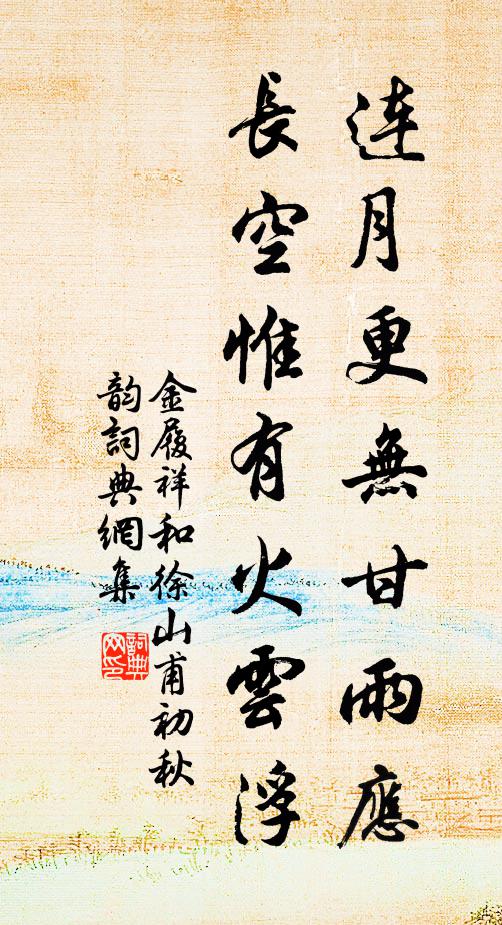 連月更無甘雨應
長空惟有火雲浮
金履祥和徐山甫初秋
韵詞典網集
詞典網印